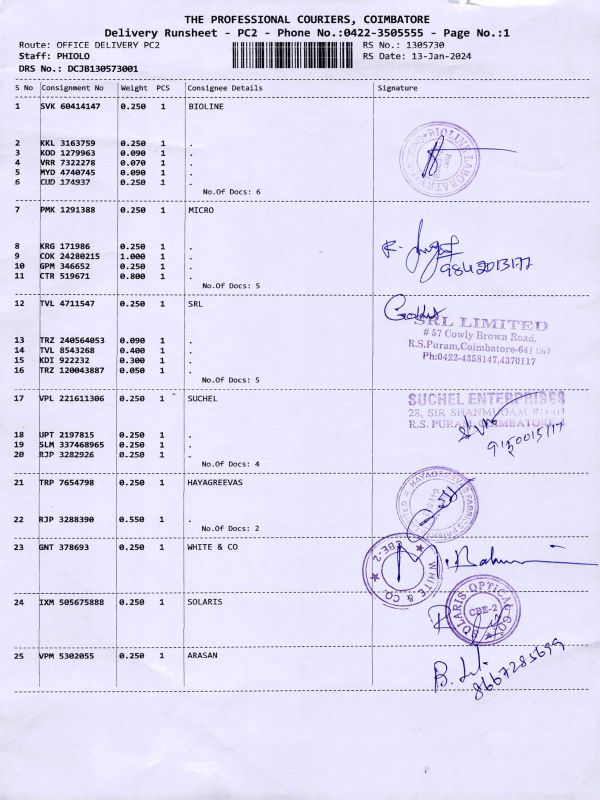 THE PROFESSIONAL COURIERS, COIMBATORE
Delivery Runsheet - PC2 - Phone No.:0422-3505555 - Page No.:1
Route: OFFICE DELIVERY PC2 RS No.: 1305730
Staff: PHIOLO RS Date: 13-Jan-2024
DRS No.: DCJB130573001
S No Consignment No Weight PCS Consignee Details Signature
1 SVK 60414147 0.250 1 BIOLINE
BIOLINE LABORATORY
2 KKL 3163759 0.250 1 .
3 KOD 1279963 0.090 1 .
4 VRR 7322278 0.070 1 .
5 MYD 4740745 0.090 1 .
6 CUD 174937 0.250 1 .
No.Of Docs: 6
7 PMK 1291388 0.250 1 MICRO
8 KRG 171986 0.250 1 .
9 COK 24280215 1.000 1 .
10 GPM 346652 0.250 1 .
11 CTR 519671 0.800 1 .
No.Of Docs: 5
12 TVL 4711547 0.250 1 SRL
SRL LIMITED
# 57 Cowly Brown Road,
R.S.Puram,Coimbatore-641 002
Ph:0422-4358147,4370117
13 TRZ 240564053 0.090 1 .
14 TVL 8543268 0.400 1 .
15 KDI 922232 0.300 1 .
16 TRZ 120043887 0.050 1 .
No.Of Docs: 5
17 VPL 221611306 0.250 1 SUCHEL
SUCHEL ENTERPRISES
28, SIR SHANMUGAM ROAD
R.S. PURAM, COIMBATORE
18 UPT 2197815 0.250 1 .
19 SLM 337468965 0.250 1 .
20 RJP 3282926 0.250 1 .
No.Of Docs: 4
21 TRP 7654798 0.250 1 HAYAGREEVAS
22 RJP 3288390 0.550 1 .
No.Of Docs: 2
23 GNT 378693 0.250 1 WHITE & CO
WHITE & CO.
CBE-2
24 IXM 505675888 0.250 1 SOLARIS
SOLARIS OPTICAL CO.
CBE-2
25 VPM 5302055 0.250 1 ARASAN
8667285699